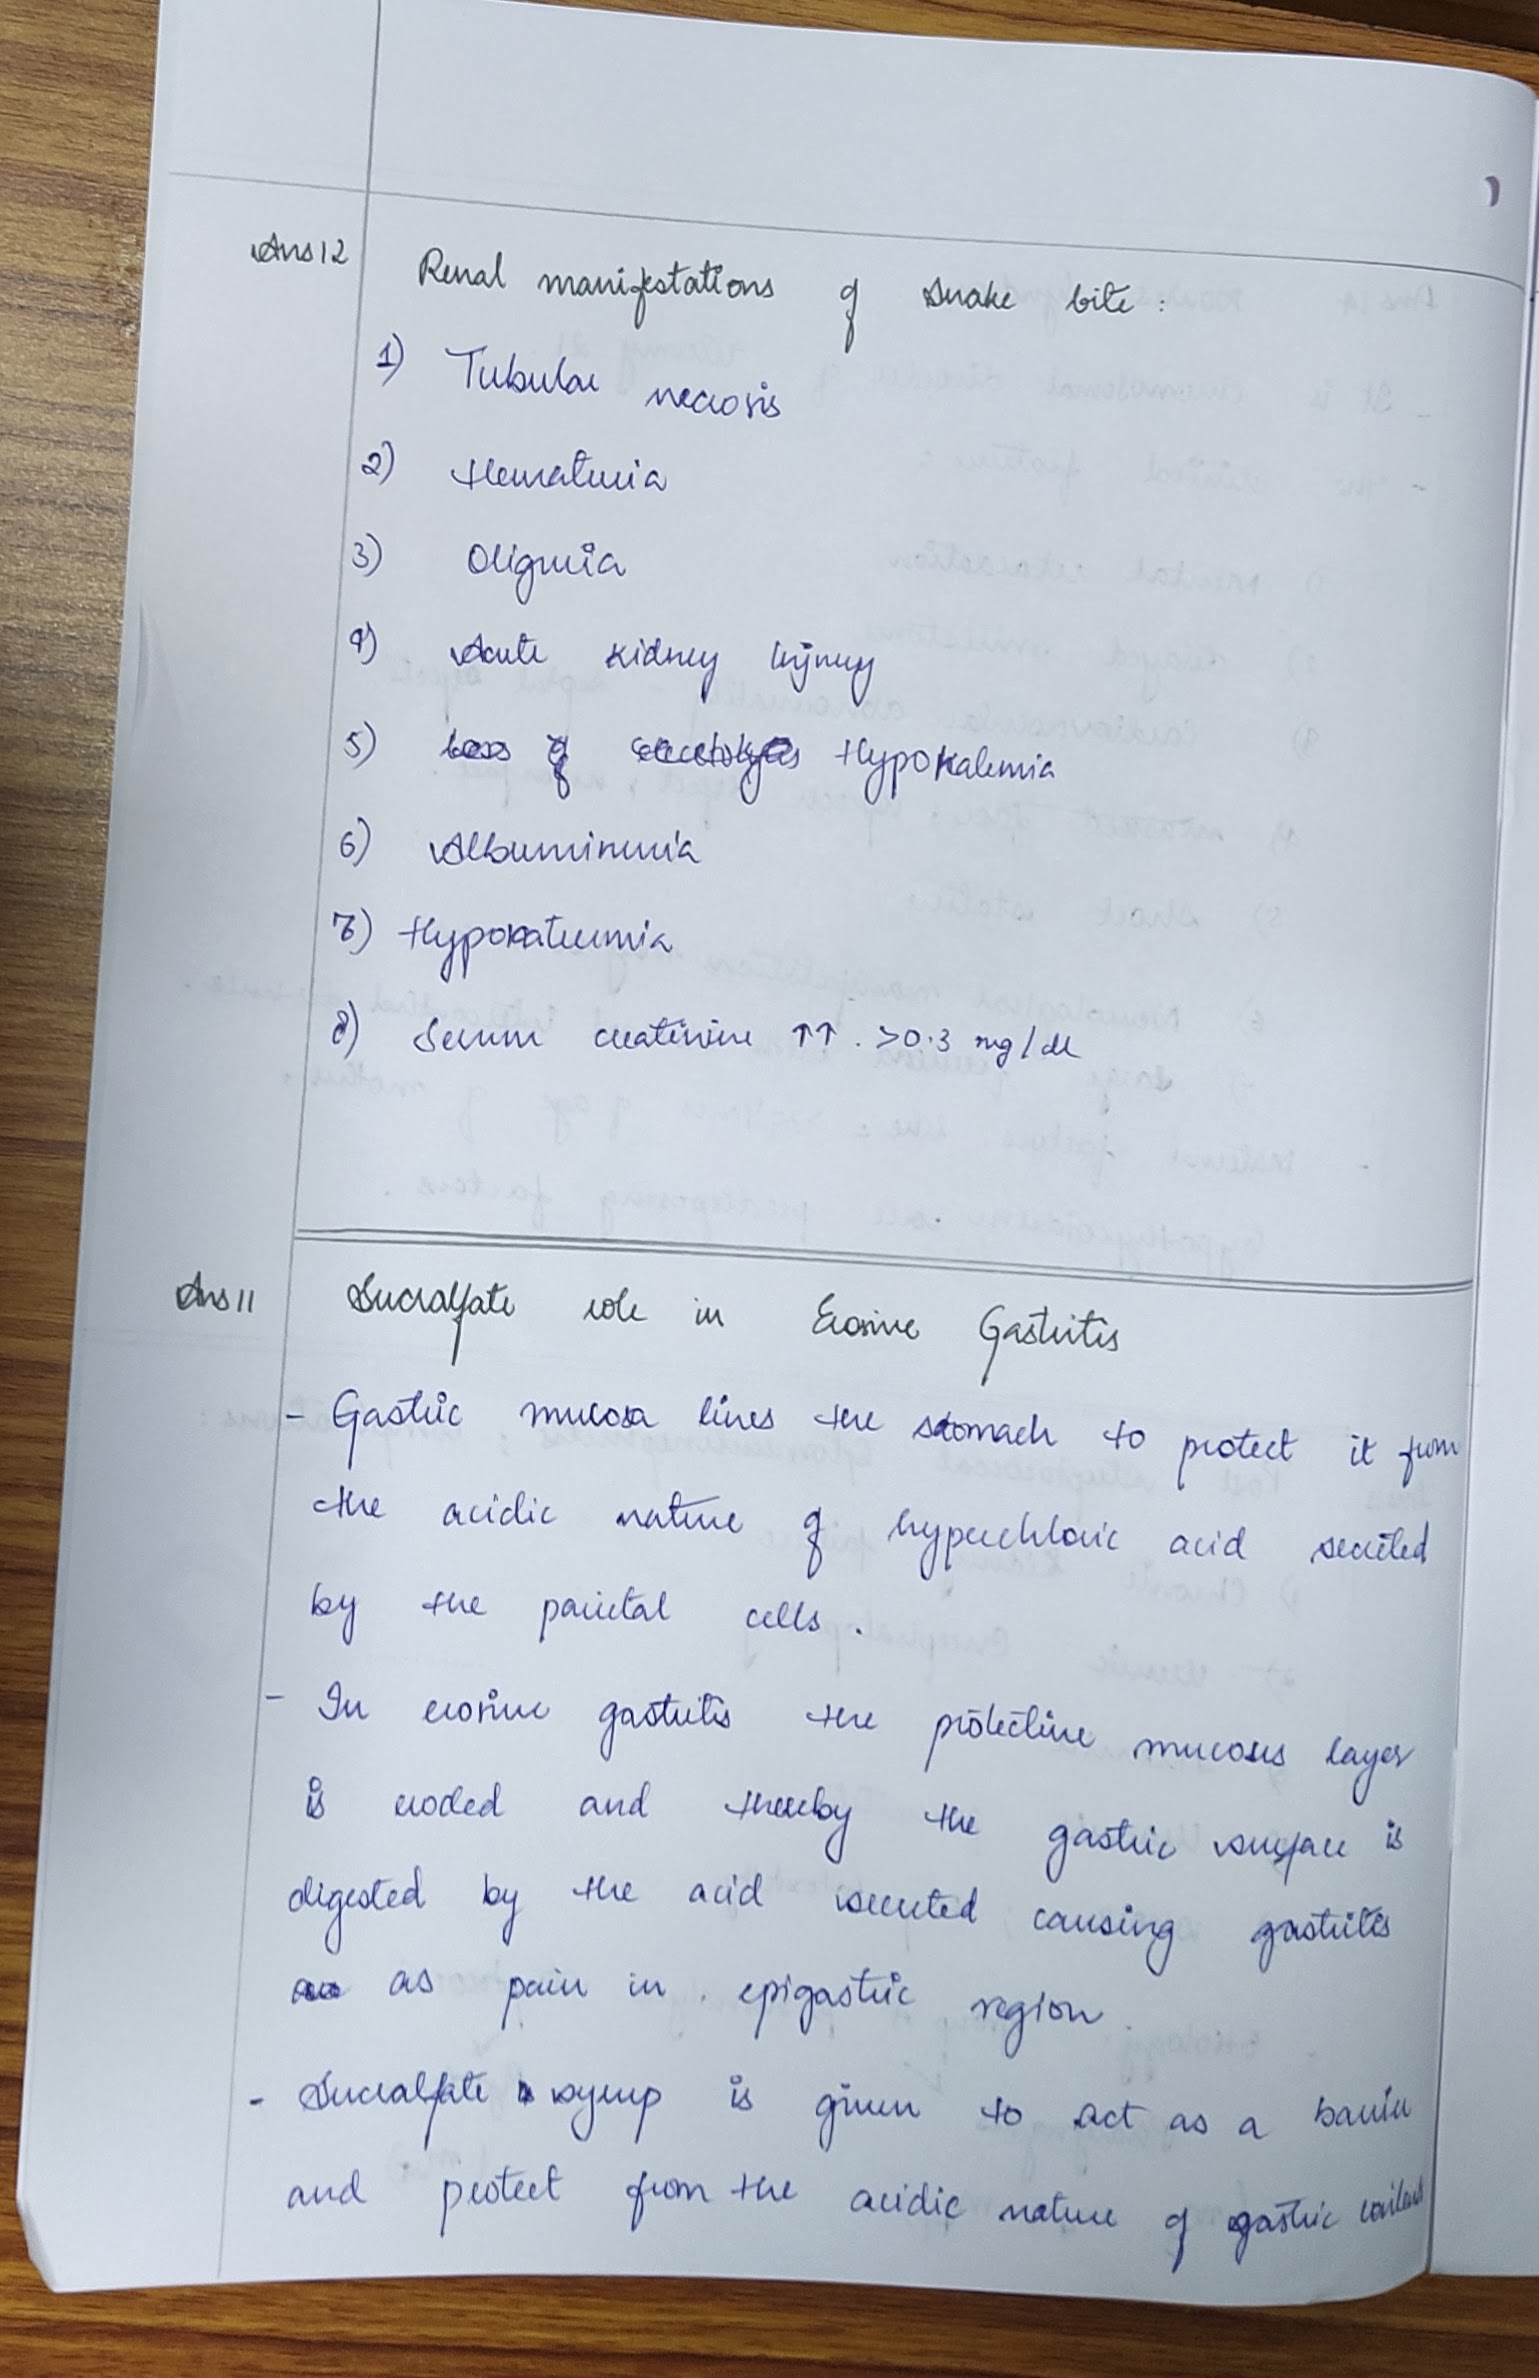 Ans 12 Renal manifestations of snake bite :
1) Tubular necrosis
2) Hematuria
3) Oliguria
4) Acute kidney injury
5) Hypokalemia
6) Albuminuria
7) Hyponatremia
8) Serum creatinine ↑↑ . >0.3 mg/dl
Ans 11 Sucralfate role in Erosive Gastritis
- Gastric mucosa lines the stomach to protect it from
the acidic nature of hyperchloric acid secreted
by the parietal cells .
- In erosive gastritis the protective mucous layer
is eroded and thereby the gastric surface is
digested by the acid secreted causing gastritis
as pain in epigastric region .
- Sucralfate syrup is given to act as a barrier
and protect from the acidic nature of gastric contents